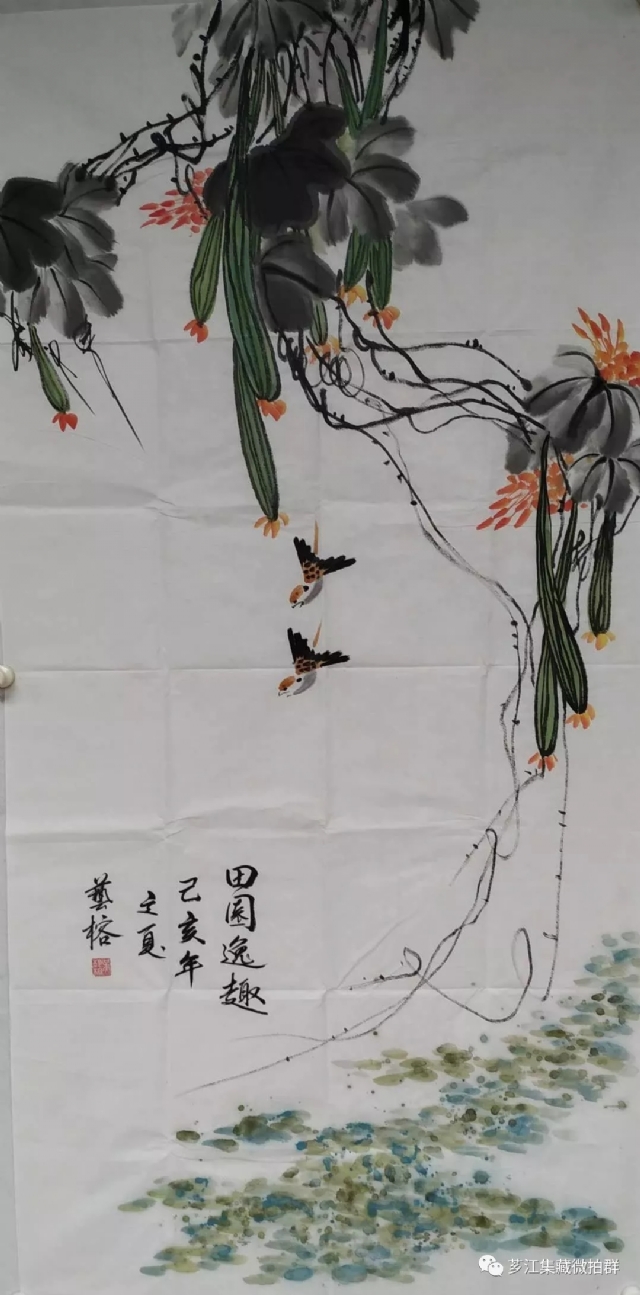 田園逸趣
己亥年
之夏
藝榕
芗江集藏微拍群